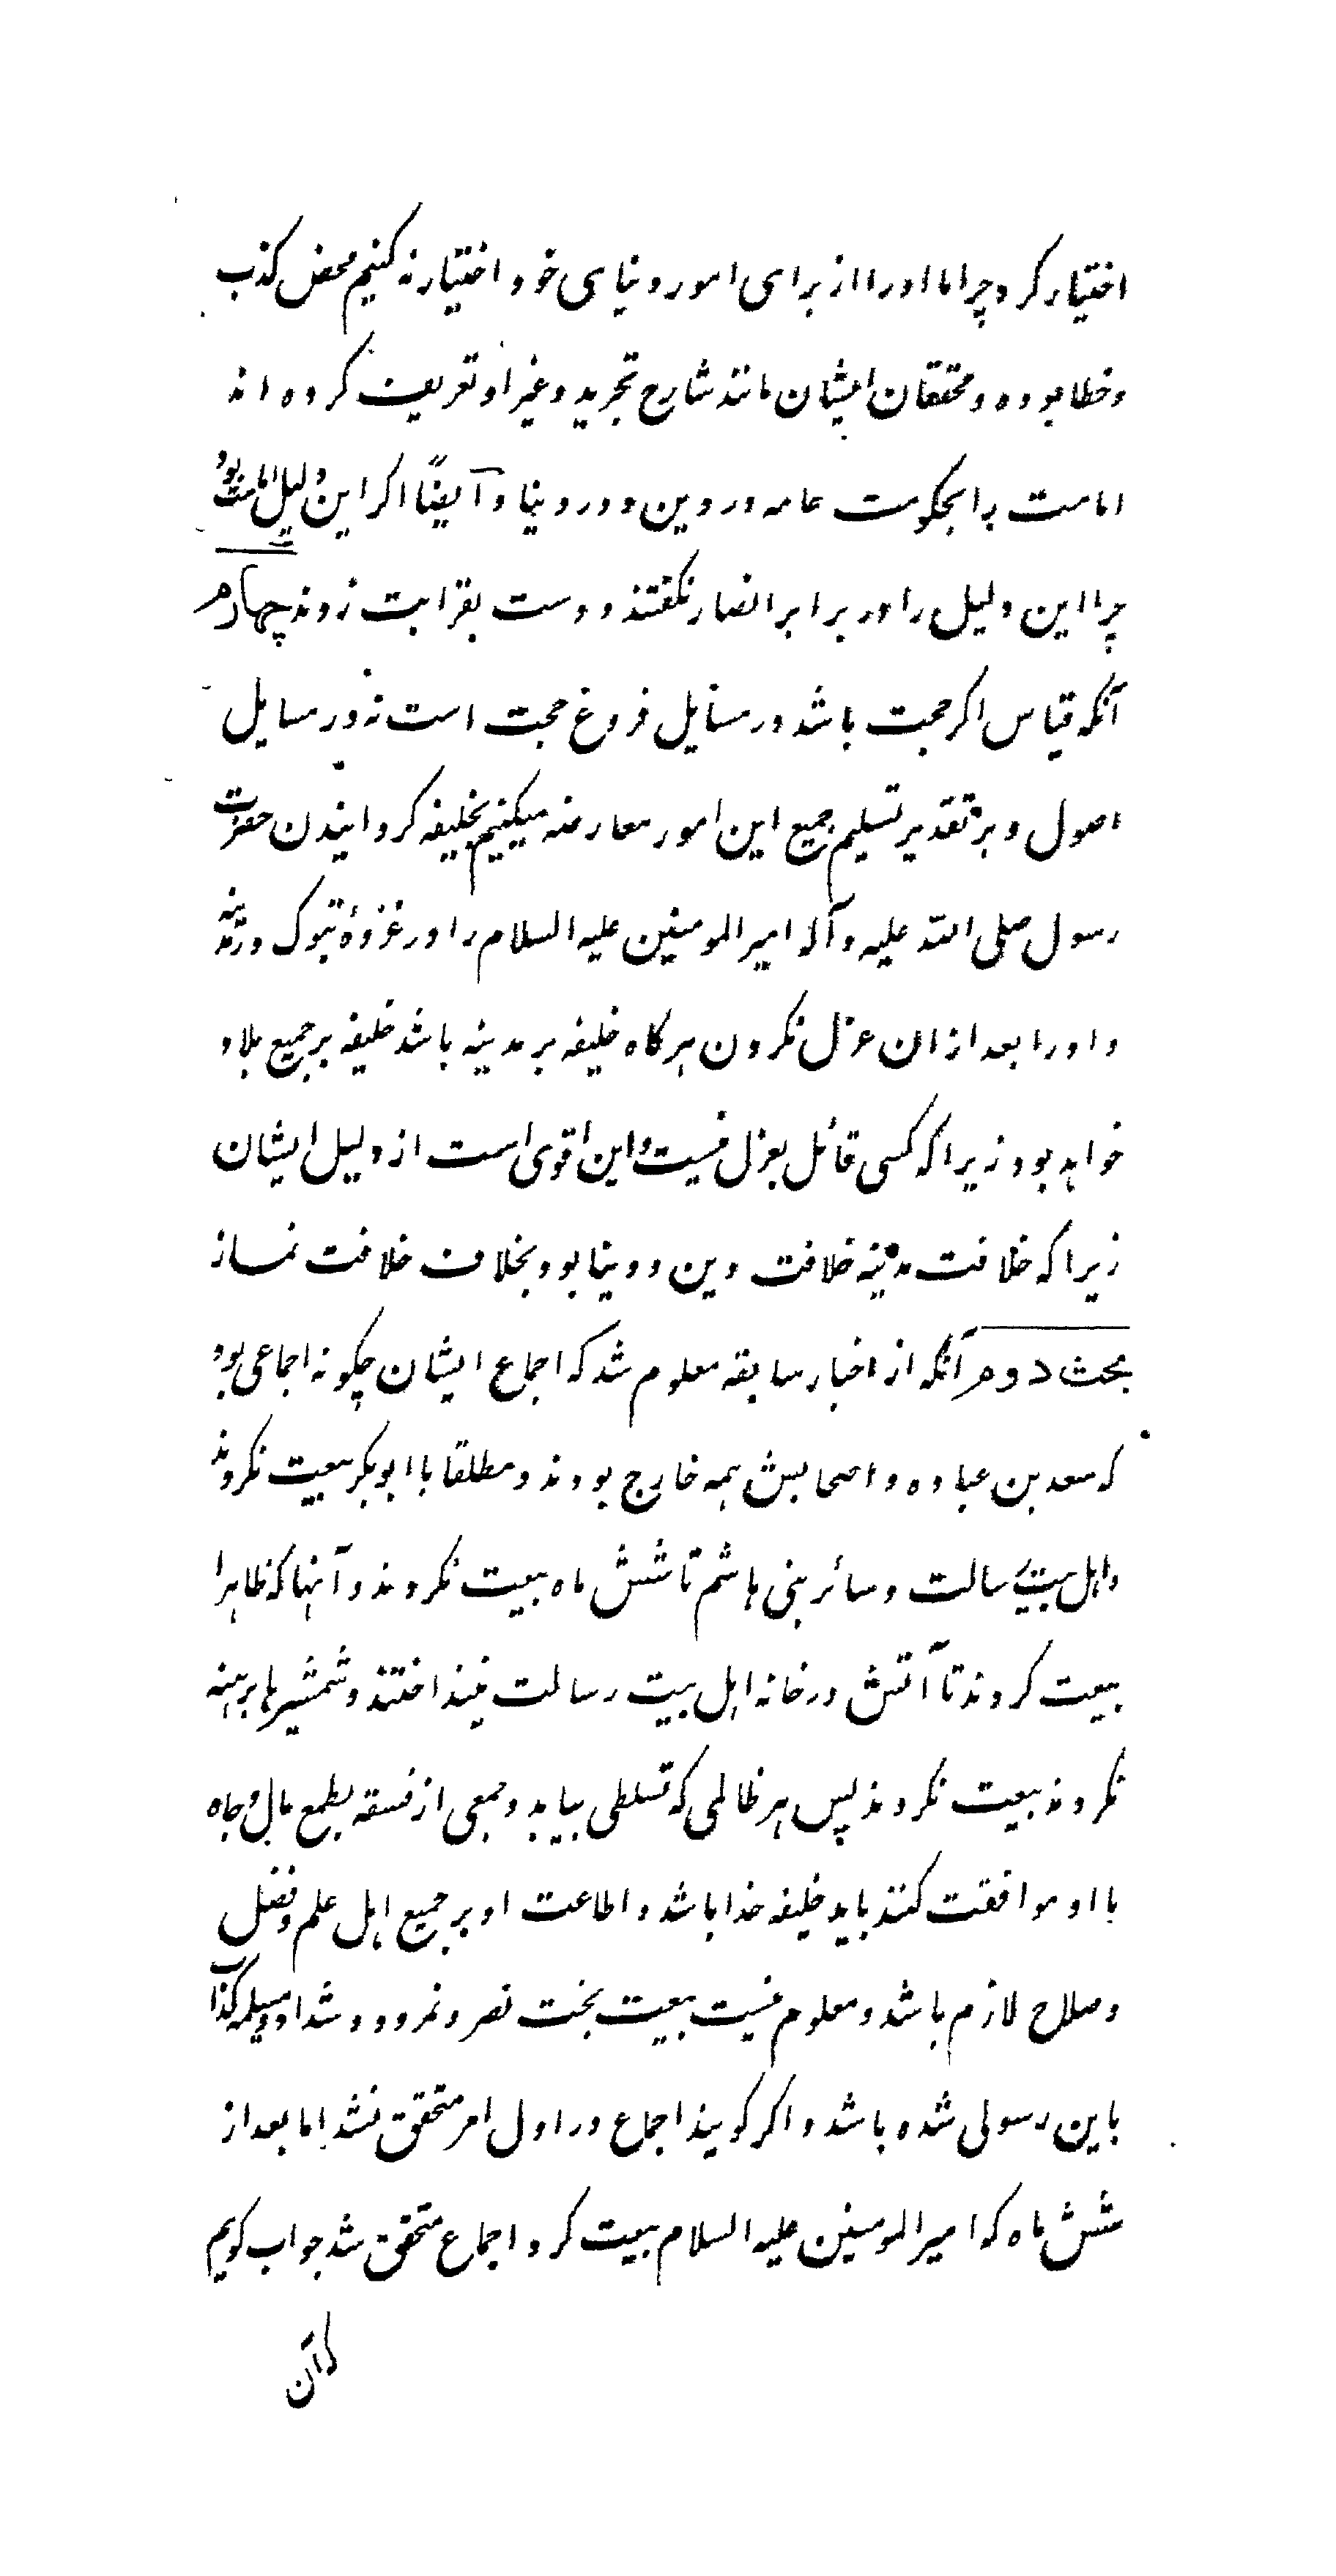 اختیار کرد چرا ما او را از برای امور دنیای خود اختیار نه کنیم محض کذب
و خطا بوده و محققان ایشان مانند شارح تجرید و غیر او تعریف کرده اند
امامت را بحکومت عامه در دین و در دنیا و آیضًا اکر این دلیل امامت بود
چرا این دلیل را در برابر انصار نکفتند و دست بقرابت زدند چهارم
آنکه قیاس اکر حجت باشد در مسایل فروع حجت است نه در مسایل
اصول و بر تقدیر تسلیم جمیع این امور معارضه میکنیم بخلیفه کردانیدن حضرت
رسول صلی الله علیه و آله امیر المومنین علیه السلام را در غزوهٔ تبوک در مدینه
و او را بعد از ان عزل نکردن هرکاه خلیفه بر مدینه باشد خلیفه بر جمیع بلاد
خواهد بود زیرا که کسی قائل بعزل نیست و این اقوی است از دلیل ایشان
زیرا که خلافت مدینه خلافت دین و دنیا بود بخلاف خلافت نماز
بحث دوم آنکه از اخبار سابقه معلوم شد که اجماع ایشان چکونه اجماعی بود
که سعد بن عباده و اصحابش همه خارج بودند و مطلقا با ابوبکر بیعت نکردند
و اهل بیت رسالت و سائر بنی هاشم تا شش ماه بیعت نکردند و آنها که ظاهرا
بیعت کردند تا آتش در خانه اهل بیت رسالت نینداختند و شمشیرها برهنه
نکردند بیعت نکردند پس هر ظالمی که تسلطی بیابد و جمعی از فسقه بطمع مال و جاه
با او موافقت کنند باید خلیفه خدا باشد و اطاعت او بر جمیع اهل علم و فضل
و صلاح لازم باشد و معلوم نیست بیعت بخت نصر و نمرود و شداد و مسیلمه کذاب
باین رسولی شده باشد و اکر کویند اجماع در اول امر متحقق نشد اما بعد از
شش ماه که امیر المومنین علیه السلام بیعت کرد اجماع متحقق شد جواب کویم
که آن